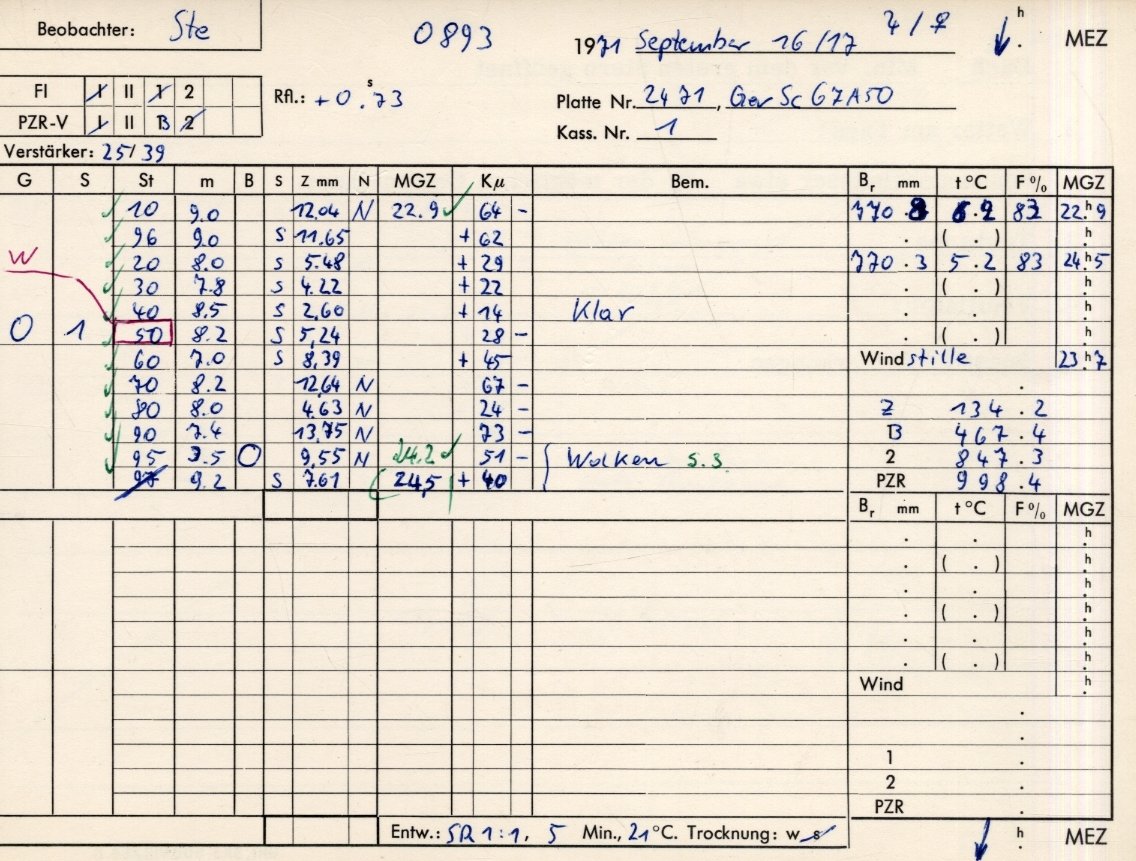 Beobachter: Ste 0893 1971 September 16/17 h . MEZ
FI I II 1 2 Rfl.: +0.s73 Platte Nr. 2471, Gev Sc 67A50
PZR-V I II B 2 Kass. Nr. 1
Verstärker: 25/39
G S St m B S Z mm N MGZ Kμ Bem. Br mm t °C F % MGZ
10 9.0 12,04 N 22.9 64 - 770.8 6.2 83 22.h9
96 9.0 S 11.65 + 62 . ( . ) h.
W 20 8.0 S 5.48 + 29 770.3 5.2 83 24.h5
30 7.8 S 4.22 + 22 . ( . ) h.
40 8.5 S 2,60 + 14 Klar . . h.
0 1 50 8.2 S 5,24 28 - . ( . ) h.
60 7.0 S 8,39 + 45 Wind stille 23.h7
70 8.2 12,64 N 67 - .
80 8.0 4.63 N 24 - Z 134.2
90 7.4 13,75 N 73 - B 467.4
95 7.5 O 9,55 N 24.2 51 - Wolken s.3. 2 847.3
97 9.2 S 7.61 24,5 + 40 PZR 998.4
Br mm t °C F % MGZ
. . h.
. ( . ) h.
. . h.
. ( . ) h.
. . h.
. ( . ) h.
Wind h.
.
.
1 .
2 .
PZR .
Entw.: SR 1:1, 5 Min., 21 °C. Trocknung: w s h . MEZ